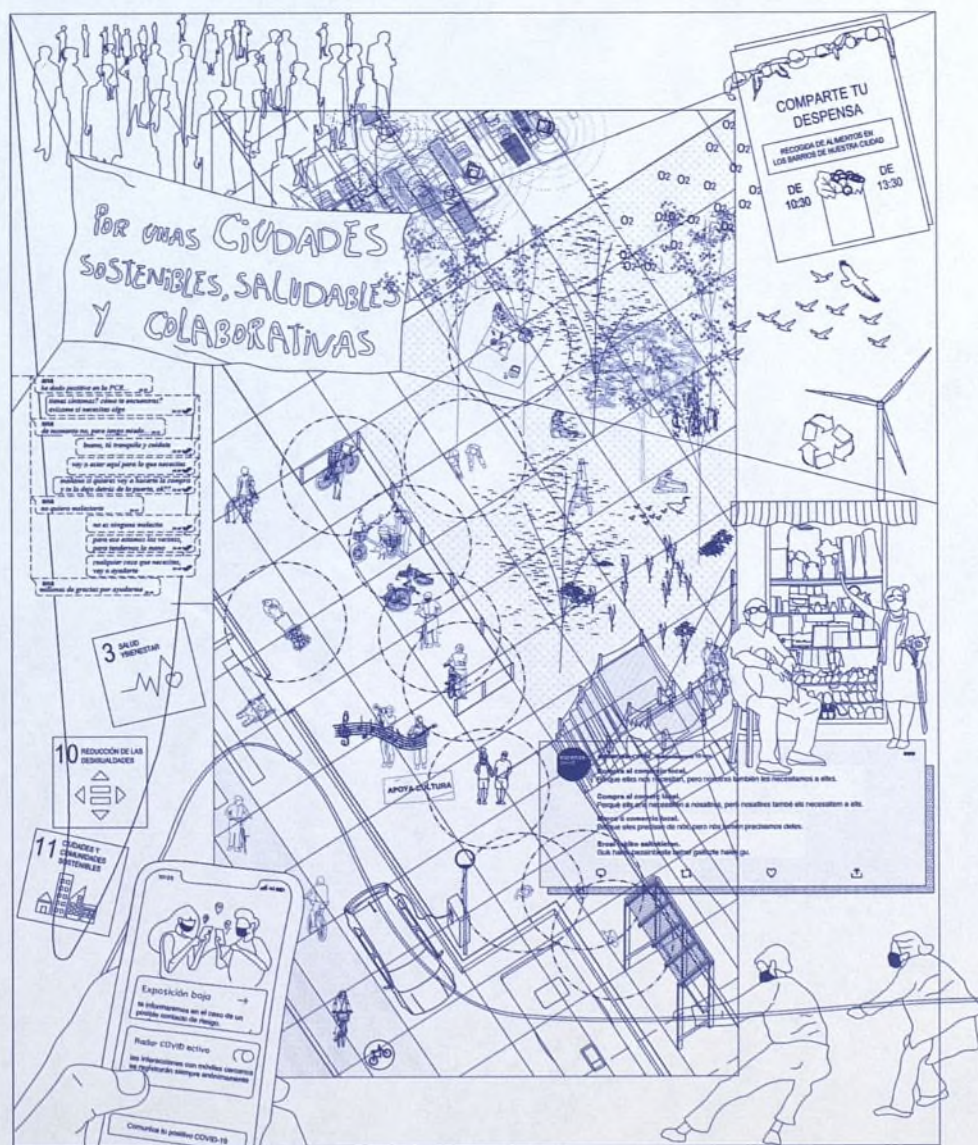 COMPARTE TU
DESPENSA
RECOGIDA DE ALIMENTOS EN
LOS BARRIOS DE NUESTRA CIUDAD
DE
10:30
DE
13:30
O2 O2 O2 O2 O2 O2 O2 O2
POR UNAS CIUDADES
SOSTENIBLES, SALUDABLES
Y COLABORATIVAS
ana
he dado positivo en la PCR...
tienes síntomas? cómo te encuentras?
avísame si necesitas algo
ana
de momento no, pero tengo miedo
bueno, tú tranquila y cuídate
voy a estar aquí para lo que necesites
mañana si quieres voy a hacerte la compra
y te la dejo detrás de la puerta, ok??
ana
no quiero molestarte
no es ninguna molestia
para eso estamos los vecinos,
para tendernos la mano
cualquier cosa que necesites,
voy a ayudarte
ana
millones de gracias por ayudarme
3 SALUD
Y BIENESTAR
10 REDUCCIÓN DE LAS
DESIGUALDADES
11 CIUDADES Y
COMUNIDADES
SOSTENIBLES
APOYA CULTURA
Compra al comercio local.
Porque elles nos necesitan, pero nosotres también les necesitamos a elles.
Compra al comerç local.
Perquè ells ens necessiten a nosaltres, però nosaltres també els necessitem a ells.
Merca o comercio local.
Porque eles precisan de nós, pero nós tamén precisamos deles.
Erosi tokiko saltokietan.
Guk haien bezainbeste behar gaituzte haiek gu.
Exposición baja →
te informaremos en el caso de un
posible contacto de riesgo.
Radar COVID activo
las interacciones con móviles cercanos
se registrarán siempre anónimamente
Comunica tu positivo COVID-19